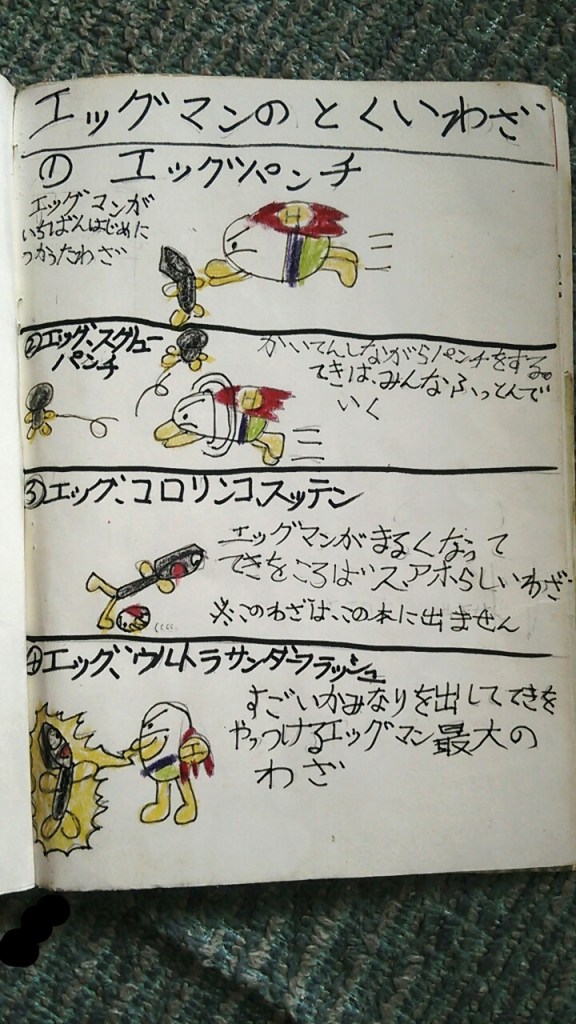 エッグマンのとくいわざ
① エッグパンチ
エッグマンが
いちばんはじめに
つかったわざ
②エッグ、スクリュー
パンチ
かいてんしながらパンチをする。
てきは、みんなふっとんで
いく
③エッグ、コロリンコ、スッテン
エッグマンがまるくなって
てきをころばす、アホらしいわざ
※このわざは、この本に出ません
④エッグ、ウルトラサンダーフラッシュ
すごいかみなりを出しててきを
やっつけるエッグマン最大の
わざ